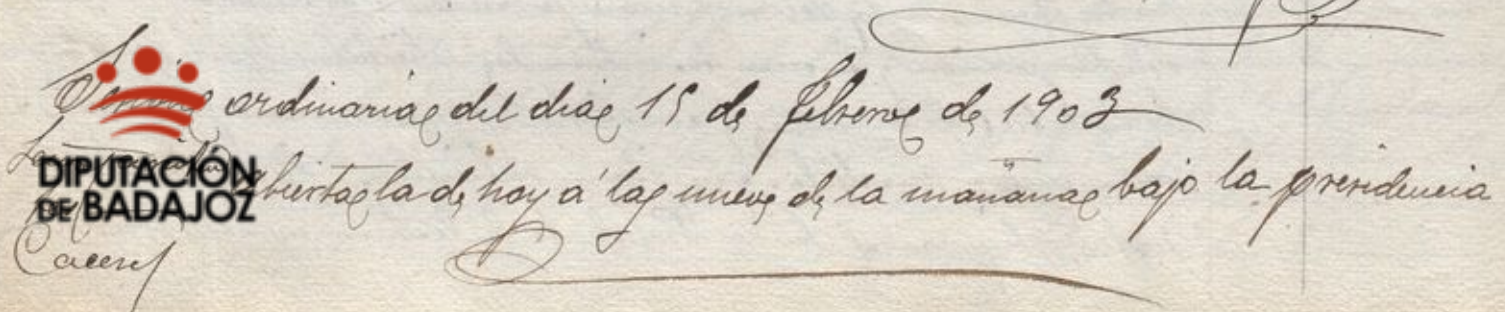 Sesion ordinaria del dia 15 de febrero de 1903
DIPUTACIÓN
DE BADAJOZ
Abierta la de hoy á las nueve de la mañana bajo la presidencia
Caceres